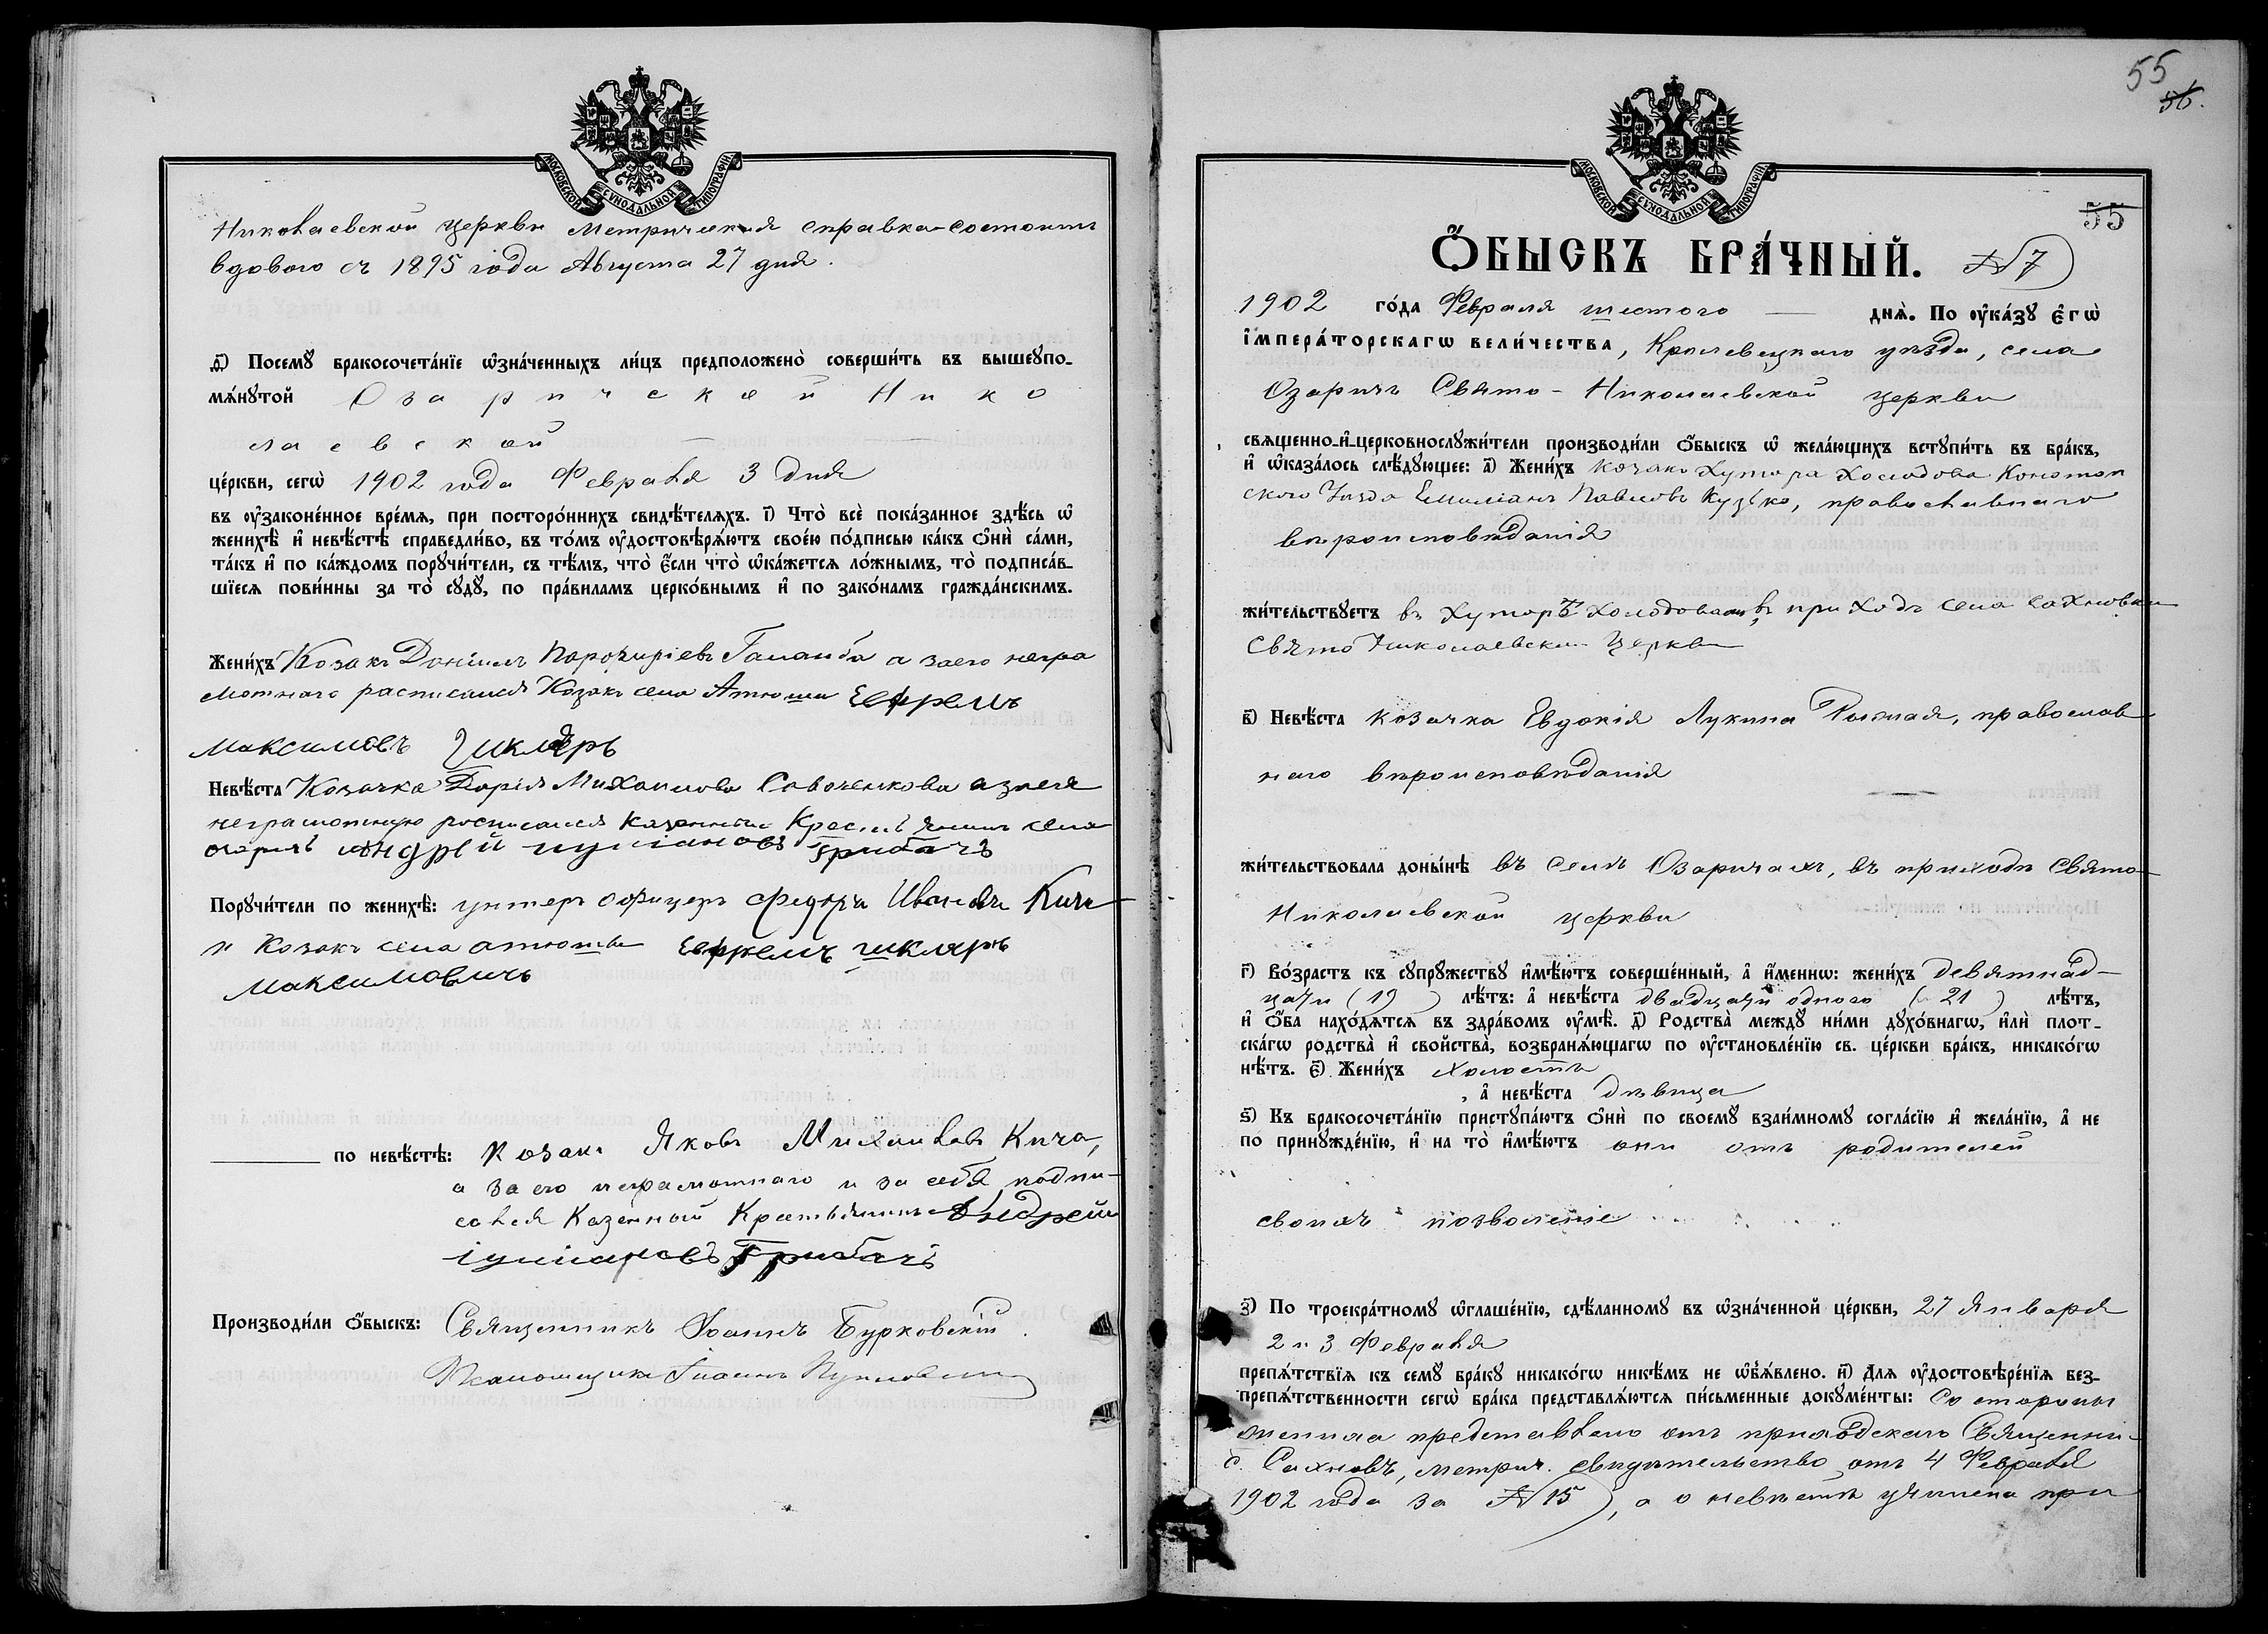 МОСКОВСКОЙ СѴНОДАЛЬНОЙ ТИПОГРАФІИ
Николаевской церкви Метрическая справка состоитъ
вдовою съ 1895 года Августа 27 дня.
д҃і) Посемꙋ̀ бракосочета́нїе ѡзна́ченныхъ ли́цъ предположено̀ соверши́ть въ вышеꙋпо-
мѧ́нꙋтой Озарической Нико
лаевской
це́ркви, сегѡ̀ 1902 года Февраля 3 дня
въ ᲂу҆зако́нє́нное вре́мѧ, при посторо́ннихъ свидѣ́телѧхъ. і҃) Что̀ всѐ пока́занное здѣ́сь ѡ҆
женихѣ̀ и҆ невѣ́стѣ справедли́во, въ то́мъ ᲂу҆достовѣрѧ́ютъ свое́ю по́дписью ка́къ ѻ҆нѝ са́ми,
та́къ и҆ по ка́ждомъ порꙋчи́тели, съ тѣ́мъ, что̀ є҆́сли что̀ ѡ҆ка́жется ло́жнымъ, то̀ подписа́в-
шїеся пови́нны за то̀ сꙋдꙋ̀, по пра́виламъ церко́внымъ и҆ по зако́намъ гражда́нскимъ.
Жени́хъ Козакъ Даніилъ Порфиріевъ а заего негра
мотнаго расписался Козакъ села Атюши Ефремъ
максимовъ Шкляръ
Невѣ́ста Козачка Дарія Михаилова Савоченкова а занея
неграмотную росписался казенный Крестьянинъ села
озаричъ Андрей Грибачъ
Порꙋчи́тели по женихѣ̀: унтеръ офицеръ Федоръ Ивановъ Кича
и Козакъ села атюши Ефремъ шкляръ
максимовичъ
по невѣ́стѣ: козакъ Яковъ Михаиловъ Кича,
а за его неграмотнаго и за себя подпи-
сался Казенный Крестьянинъ Андрей
Грибачъ
Производи́ли ѻ҆́быскъ: Священникъ Іоаннъ Бурковскій.
Псаломщикъ Іоаннъ
55
56.
МОСКОВСКОЙ СѴНОДАЛЬНОЙ ТИПОГРАФІИ
55
Ѻ҆́БЫСКЪ БРА́ЧНЫЙ. №7
1902 го́да Февраля шестого днѧ̀. По ᲂу҆ка́зꙋ Є҆гѡ̀
І҆мпера́торскагѡ вели́чества, Кролевецкаго уѣзда, села
Озаричъ Свято-Николаевской церкви
свяще́нно-и҆-церковнослꙋжи́тели производи́ли ѻ҆́быскъ ѡ҆ жела́ющихъ встꙋпи́ть въ бра́къ,
и҆ ѡ҆каза́лось слѣ́дꙋющее: а҃) Жени́хъ козакъ хутора холодова Конотоп
ского Уѣзда Емиліанъ Павловъ Кузько, православнаго
вѣроисповѣданія
жи́тельствꙋетъ въ хуторѣ въ приходѣ села сахновки
Свято Николаевской Церкви
в҃) Невѣ́ста козачка Евдокія Лукина православ
наго вѣроисповѣданія
жи́тельствовала доны́нѣ въ селѣ Озаричахъ, въ приходѣ Свято-
Николаевской церкви
г҃) Во́зрастъ къ сꙋпрꙋ́жествꙋ и҆мѣ́ютъ соверше́нный, а҆ и҆́меннѡ: жени́хъ девятнад-
цати (19) лѣ́тъ: а҆ невѣ́ста двадцати одного (21) лѣ́тъ,
и҆ ѻ҆́ба нахо́дѧтся въ здра́вомъ ᲂу҆мѣ̀. д҃) Родства̀ междꙋ̀ ни́ми дꙋхо́внагѡ, и҆лѝ плот-
ска́гѡ родства̀ и҆ сво́йства̀, возбранѧ́ющагѡ по ᲂу҆становле́нїю св. це́ркви бра́къ, никако́гѡ
нѣ́тъ. є҃) Жени́хъ холостъ
, а҆ невѣ́ста дѣвица
ѕ҃) Къ бракосочета́нїю пристꙋпа́ютъ ѻ҆нѝ по своемꙋ̀ взаи́мномꙋ согла́сїю и҆ жела́нїю, а҆ не
по принꙋжде́нїю, и҆ на то̀ и҆мѣ́ютъ они отъ родителей
своихъ позволеніе
з҃) По троекра́тномꙋ ѡ҆глаше́нїю, сдѣ́ланномꙋ въ ѡ҆зна́ченной це́ркви, 27 Января
2 и 3 Февраля
препѧ́тствїѧ къ семꙋ̀ бра́кꙋ никако́гѡ никѣ́мъ не ѡ҆б̾ѧ́влено. и҃) Длѧ ᲂу҆достовѣре́нїѧ без-
препѧ́тственности сегѡ̀ бра́ка представлѧ́ются пи́сьменные докꙋме́нты: Со стороны
жениха представлено отъ приходскаго Священни-
с. Сахновъ, метрич. свидѣтельство отъ 4 Февраля
1902 года за № 15, а о невѣстѣ учинена при